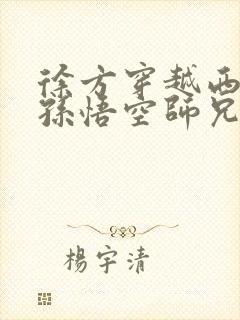 徐方穿越西
孫悟空師兄
楊宇清